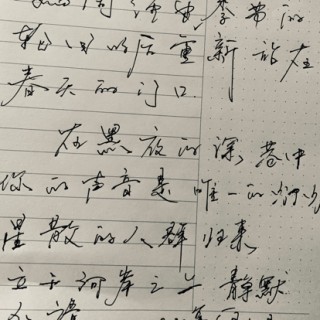 季节的
以后重新站在
春天的门口
在黑夜的深巷中
你的声音是唯一的
星散的人群归来
立于河岸之上 静默